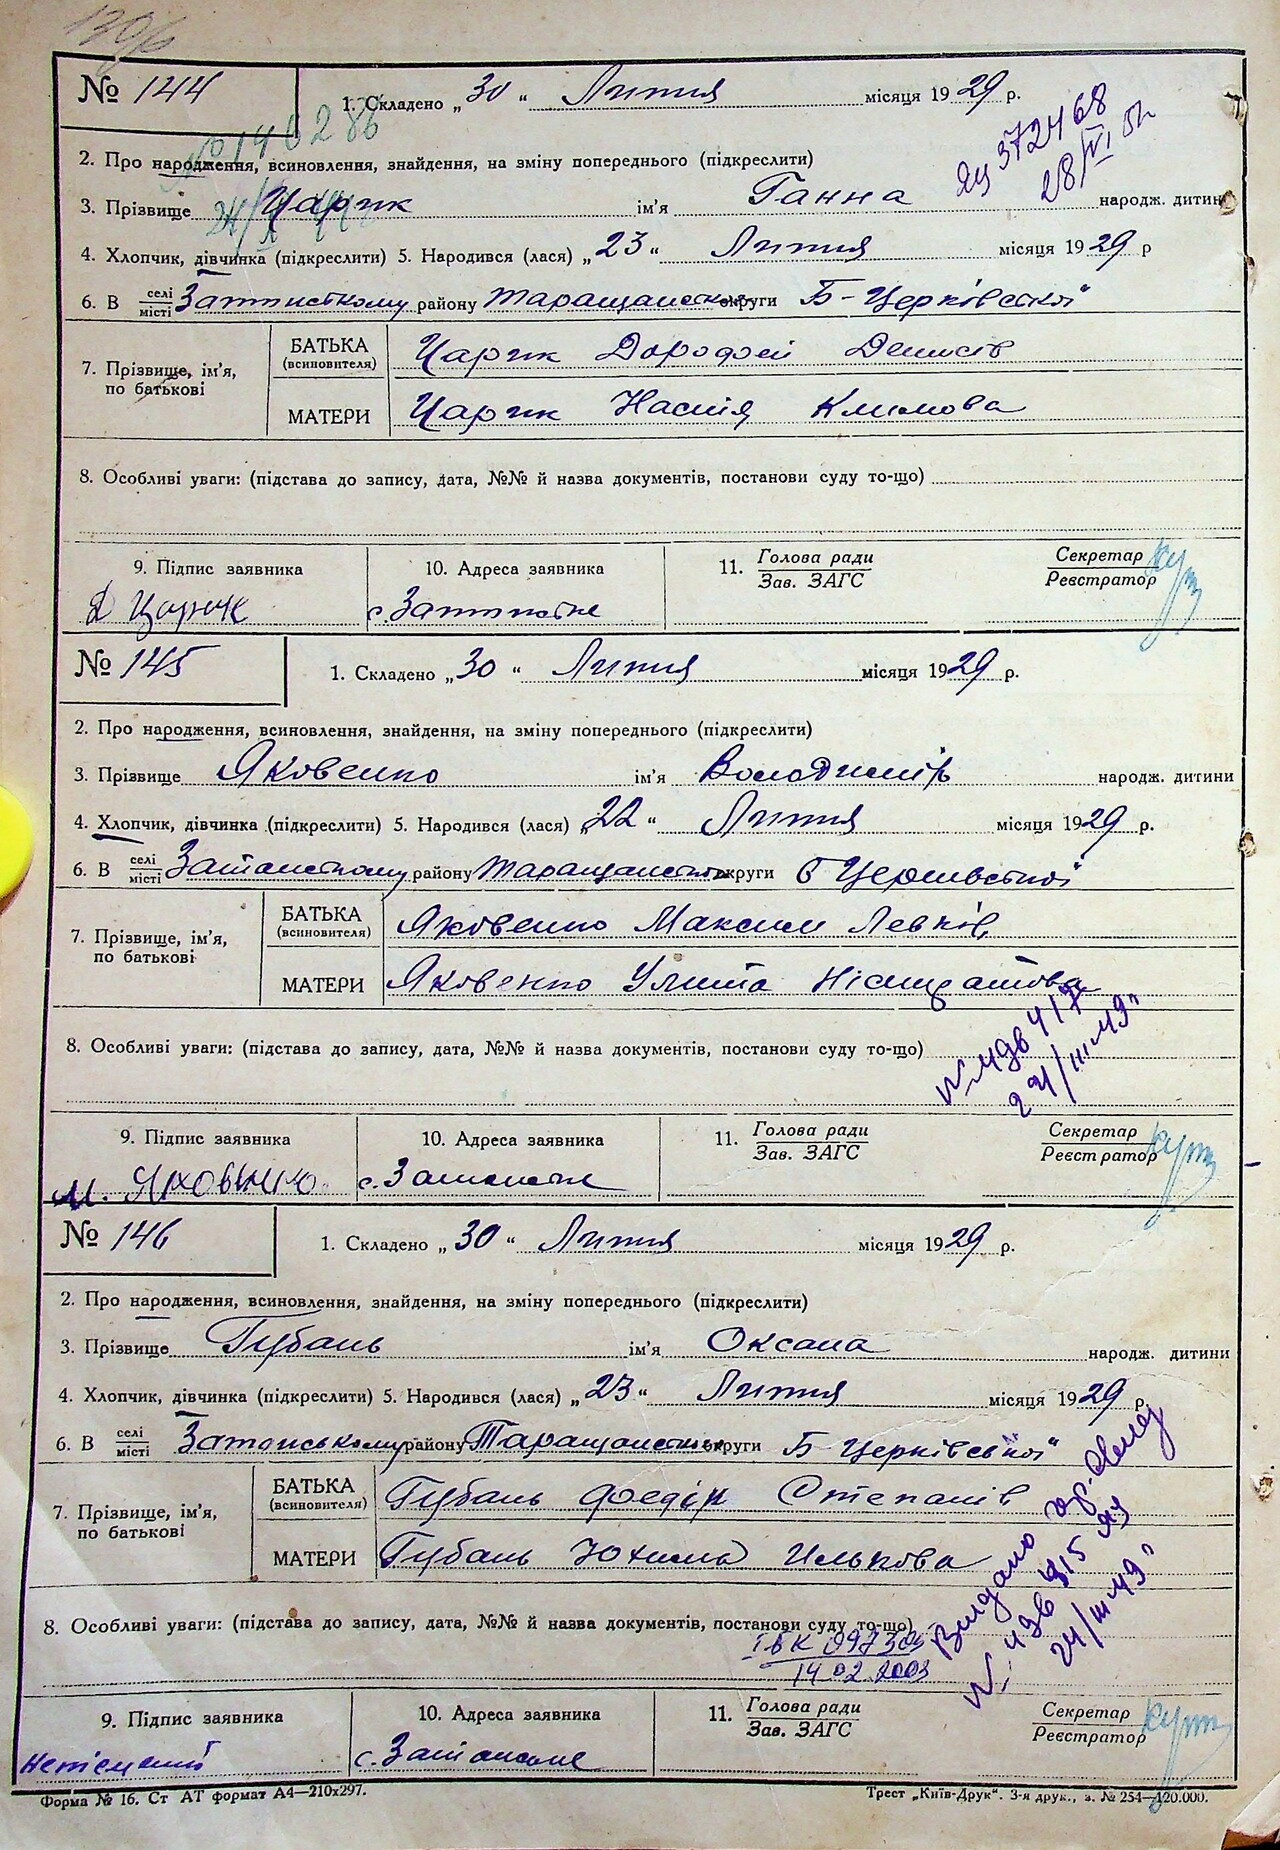 № 144 1. Складено „ 30 “ Липня місяця 1929 р.
№ 140288
Яц 372468
28/VI 51г.
2. Про народження, всиновлення, знайдення, на зміну попереднього (підкреслити)
3. Прізвище Царик ім'я Ганна народж. дитини
4. Хлопчик, дівчинка (підкреслити) 5. Народився (лася) „ 23 “ Липня місяця 1929 р
6. В селі/місті району Таращанськ округи Б-Церківської
7. Прізвище, ім'я, по батькові
БАТЬКА (всиновителя) Царик Дорофей Денисів
МАТЕРИ Царик Настя Климова
8. Особливі уваги: (підстава до запису, дата, №№ й назва документів, постанови суду то-що)
9. Підпис заявника 10. Адреса заявника 11. Голова ради Секретар
Зав. ЗАГС Реєстратор
Д Царик с.
№ 145 1. Складено „ 30 “ Липня місяця 1929 р.
2. Про народження, всиновлення, знайдення, на зміну попереднього (підкреслити)
3. Прізвище Яковенко ім'я Володимір народж. дитини
4. Хлопчик, дівчинка (підкреслити) 5. Народився (лася) „ 22 “ Липня місяця 1929 р.
6. В селі/місті району Таращанськ округи Б Церківської
7. Прізвище, ім'я, по батькові
БАТЬКА (всиновителя) Яковенко Максим Левків
МАТЕРИ Яковенко Улита
8. Особливі уваги: (підстава до запису, дата, №№ й назва документів, постанови суду то-що)
417
24/III 49"
9. Підпис заявника 10. Адреса заявника 11. Голова ради Секретар
Зав. ЗАГС Реєстратор
М. с.
№ 146 1. Складено „ 30 “ Липня місяця 1929 р.
2. Про народження, всиновлення, знайдення, на зміну попереднього (підкреслити)
3. Прізвище Губань ім'я Оксана народж. дитини
4. Хлопчик, дівчинка (підкреслити) 5. Народився (лася) „ 23 “ Липня місяця 1929 р.
6. В селі/місті району Таращанськ округи Б-Церківської
7. Прізвище, ім'я, по батькові
БАТЬКА (всиновителя) Губань Федір Степанів
МАТЕРИ Губань Юхима Илькова
8. Особливі уваги: (підстава до запису, дата, №№ й назва документів, постанови суду то-що)
14.02.2003
Видано
24/III 49"
9. Підпис заявника 10. Адреса заявника 11. Голова ради Секретар
Зав. ЗАГС Реєстратор
с.
Форма № 16. Ст АТ формат А4—210x297. Трест „Київ-Друк“. 3-я друк., з. № 254—120.000.